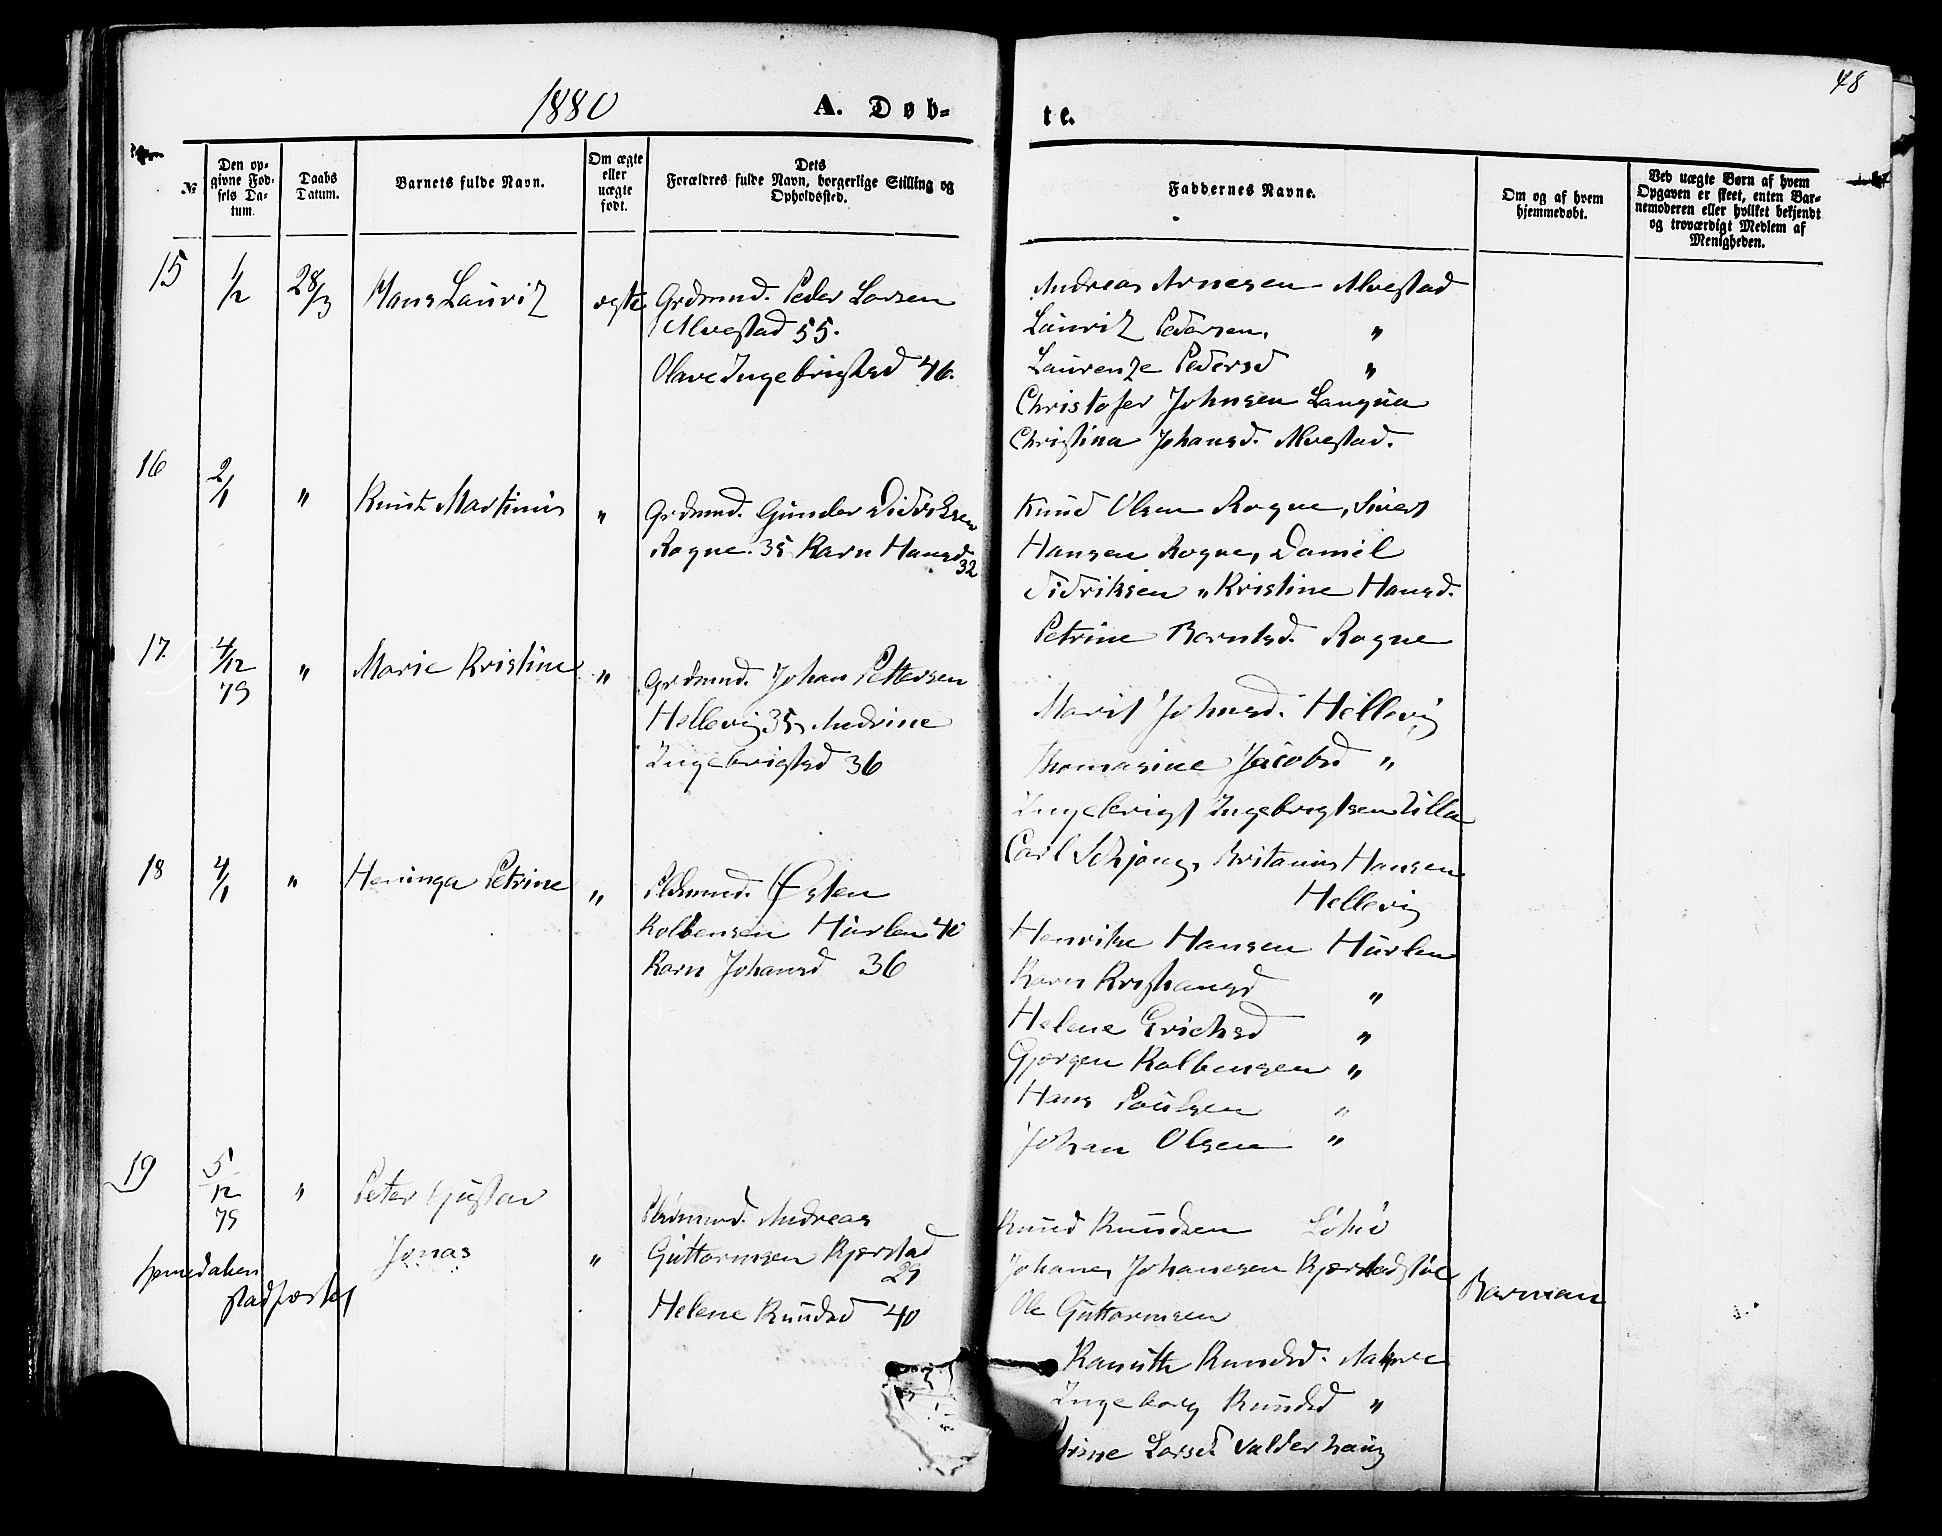 48
1880 A. Døb= te.
№
Den op=
givne Fød=
sels Da=
tum.
Daabs
Datum.
Barnets fulde Navn.
Om ægte
eller
uægte
født.
Dets
Forældres fulde Navn, borgerlige Stilling og
Opholdssted.
Faddernes Navne.
Om og af hvem
hjemmedøbt.
Ved uægte Børn af hvem
Opgaven er skeet, enten Bar=
nemoderen eller hvilket bekjendt
og troværdigt Medlem af
Menigheden.
15 1/2 28/3 Hans Lauritz ægte
Grdmnd. Peder Larsen
Alvestad 55.
Olave Ingebrigtsd 46.
Andreas Arnesen Alvestad
Lauritz Pedersen. "
Laurentze Pedersd "
Christofer Johnsen Langua
Christina Johansd. Alvestad.
16 2/1 " Knut Martinus "
Grdmnd. Gunder Didriksen
Rogne. 35 Karn Hansd.
32
Knud Olsen Rogne, Sivert
Hansen Rogne, Daniel
Didriksen " Kristine Hansd.
Petrine Berntsd. Rogne
17. 4/12 79 " Marie Kristine "
Grdmnd. Johan Pettersen
Hellevig 35, Andrine
Ingebrigtsd 36
Marit Johnsd. Hellevig
Thomasine Jacobsd "
Ingebrigt Ingebrigtsen Ulla
Carl Schjong, Britanus Hansen
Hellevig
18 4/1 " Heninga Petrine "
Pldsmnd. Østen
Kolbensen Hurlen 40
Karn Johansd 36
Henrike Hansen Hurlen
Karn Kristiansd "
Helene Erichsd "
Gjørgen Kolbensen "
Hans Poulsen "
Johan Olsen "
19 5/12 79 " Peter Gustav
Jonas "
Andreas
Guttormsen Kjerstad
29
Helene Knudsd 40
Knud Knudsen
Johanes Johanesen Kjerstad
Ole Guttormsen
Knudsd.
Ingeborg Knudsd "
Larsd. Valderhaug